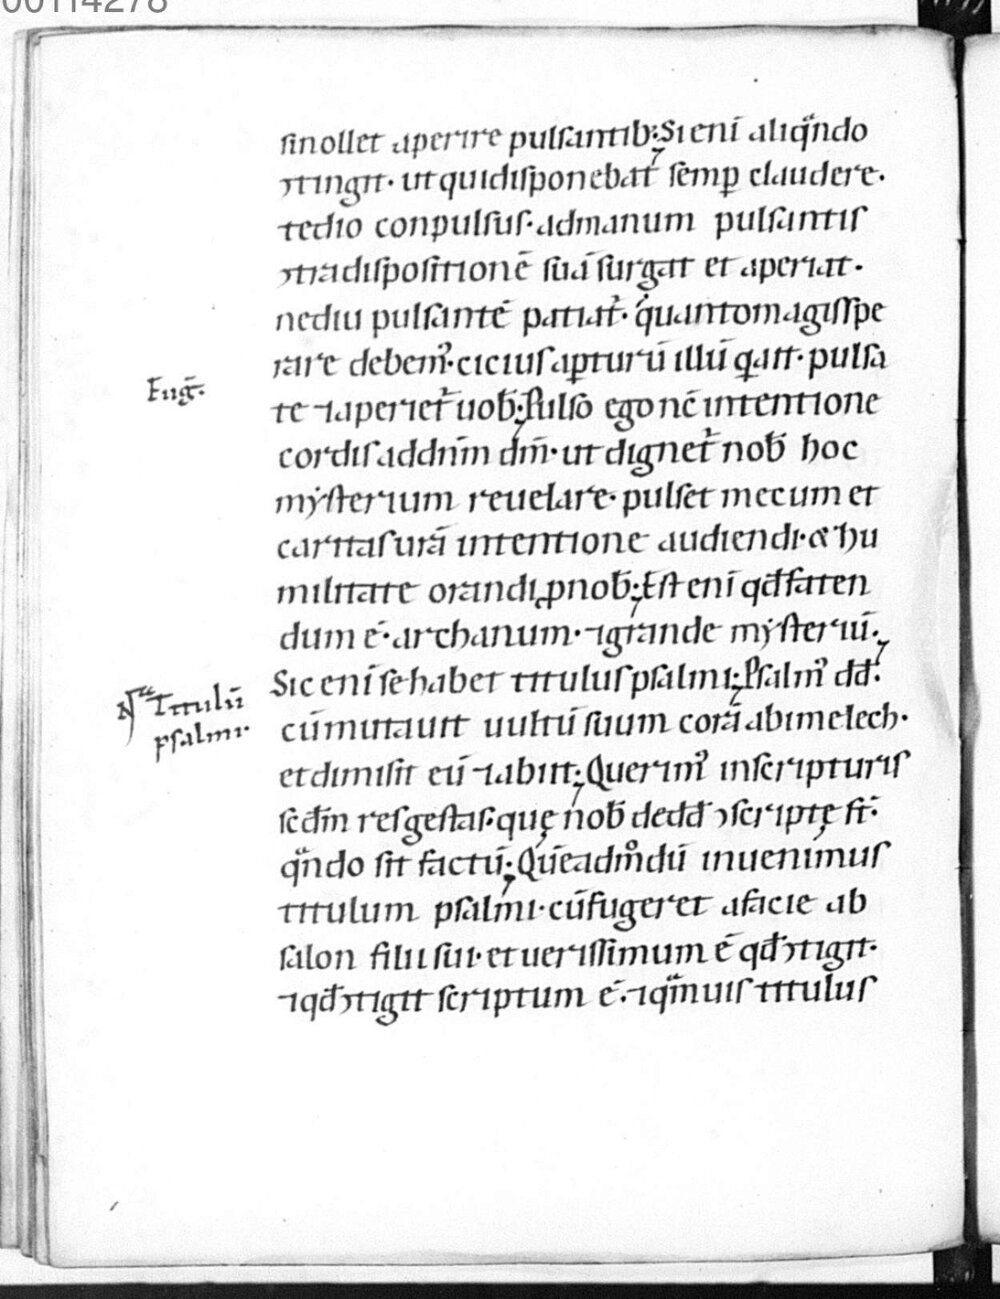 00114278
sinollet aperire pulsantib;. Si enī aliqͣndo
ↄtingit· ut qui disponebat᷑ semꝑ claudere·
tedio conpulsus· ad manum pulsantis
ↄtra dispositionē suā surgat et aperiat·
ne diu pulsantē patiat᷑· quanto magis spe
rare debemꝰ· cicius aꝑturū illū q̇ ait· pulsa
Eug̅·
te ⁊ aperiet᷑ uob̅;. Pulso ego nc̄ intentione
cordis ad dnm̅ dm̅· ut dignet᷑ nob̅ hoc
mẏsterium reuelare· pulset mecum et
caritas urā intentione audiendi· & hu
militate orandi ꝓ nob̅;. Est enī qd̅ faten
dum ē· archanum· ⁊ grande mẏsteriū·
Sic enī se habet titulus psalmi;. Psalmꝰ dd̅·
Titulū
psalmi·
cū mutauit uultū suum corā abimelech·
et dimisit eū ⁊ abiit;. Querimꝰ in scripturis
sc̄dm̅ res gestas· quę nob̅ de dd̅ ↄscriptę st̅·
qͣndo sit factū;. Quēadmͦdū inuenimus
titulum psalmi· cū fugeret a facie ab
salon filii sui· et uerissimum ē qd̅ ↄtigit·
⁊ qd̅ ↄtigit scriptum ē· ⁊ qͣmuis titulus